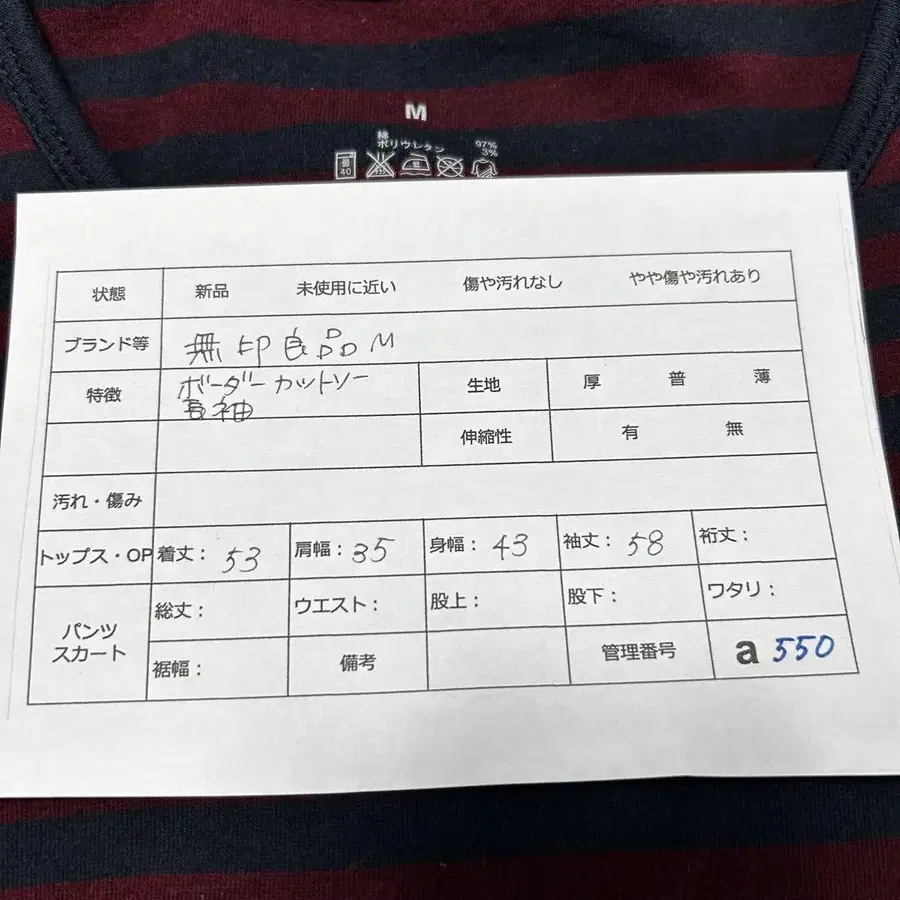 M
綿 97%
ポリウレタン 3%
40
状態 新品 未使用に近い 傷や汚れなし やや傷や汚れあり
ブランド等 無印良品 M
特徴 ボーダーカットソー 生地 厚 普 薄
長袖
伸縮性 有 無
汚れ・傷み
トップス・OP 着丈: 53 肩幅: 35 身幅: 43 袖丈: 58 裄丈:
パンツ 総丈: ウエスト: 股上: 股下: ワタリ:
スカート
裾幅: 備考 管理番号 a 550